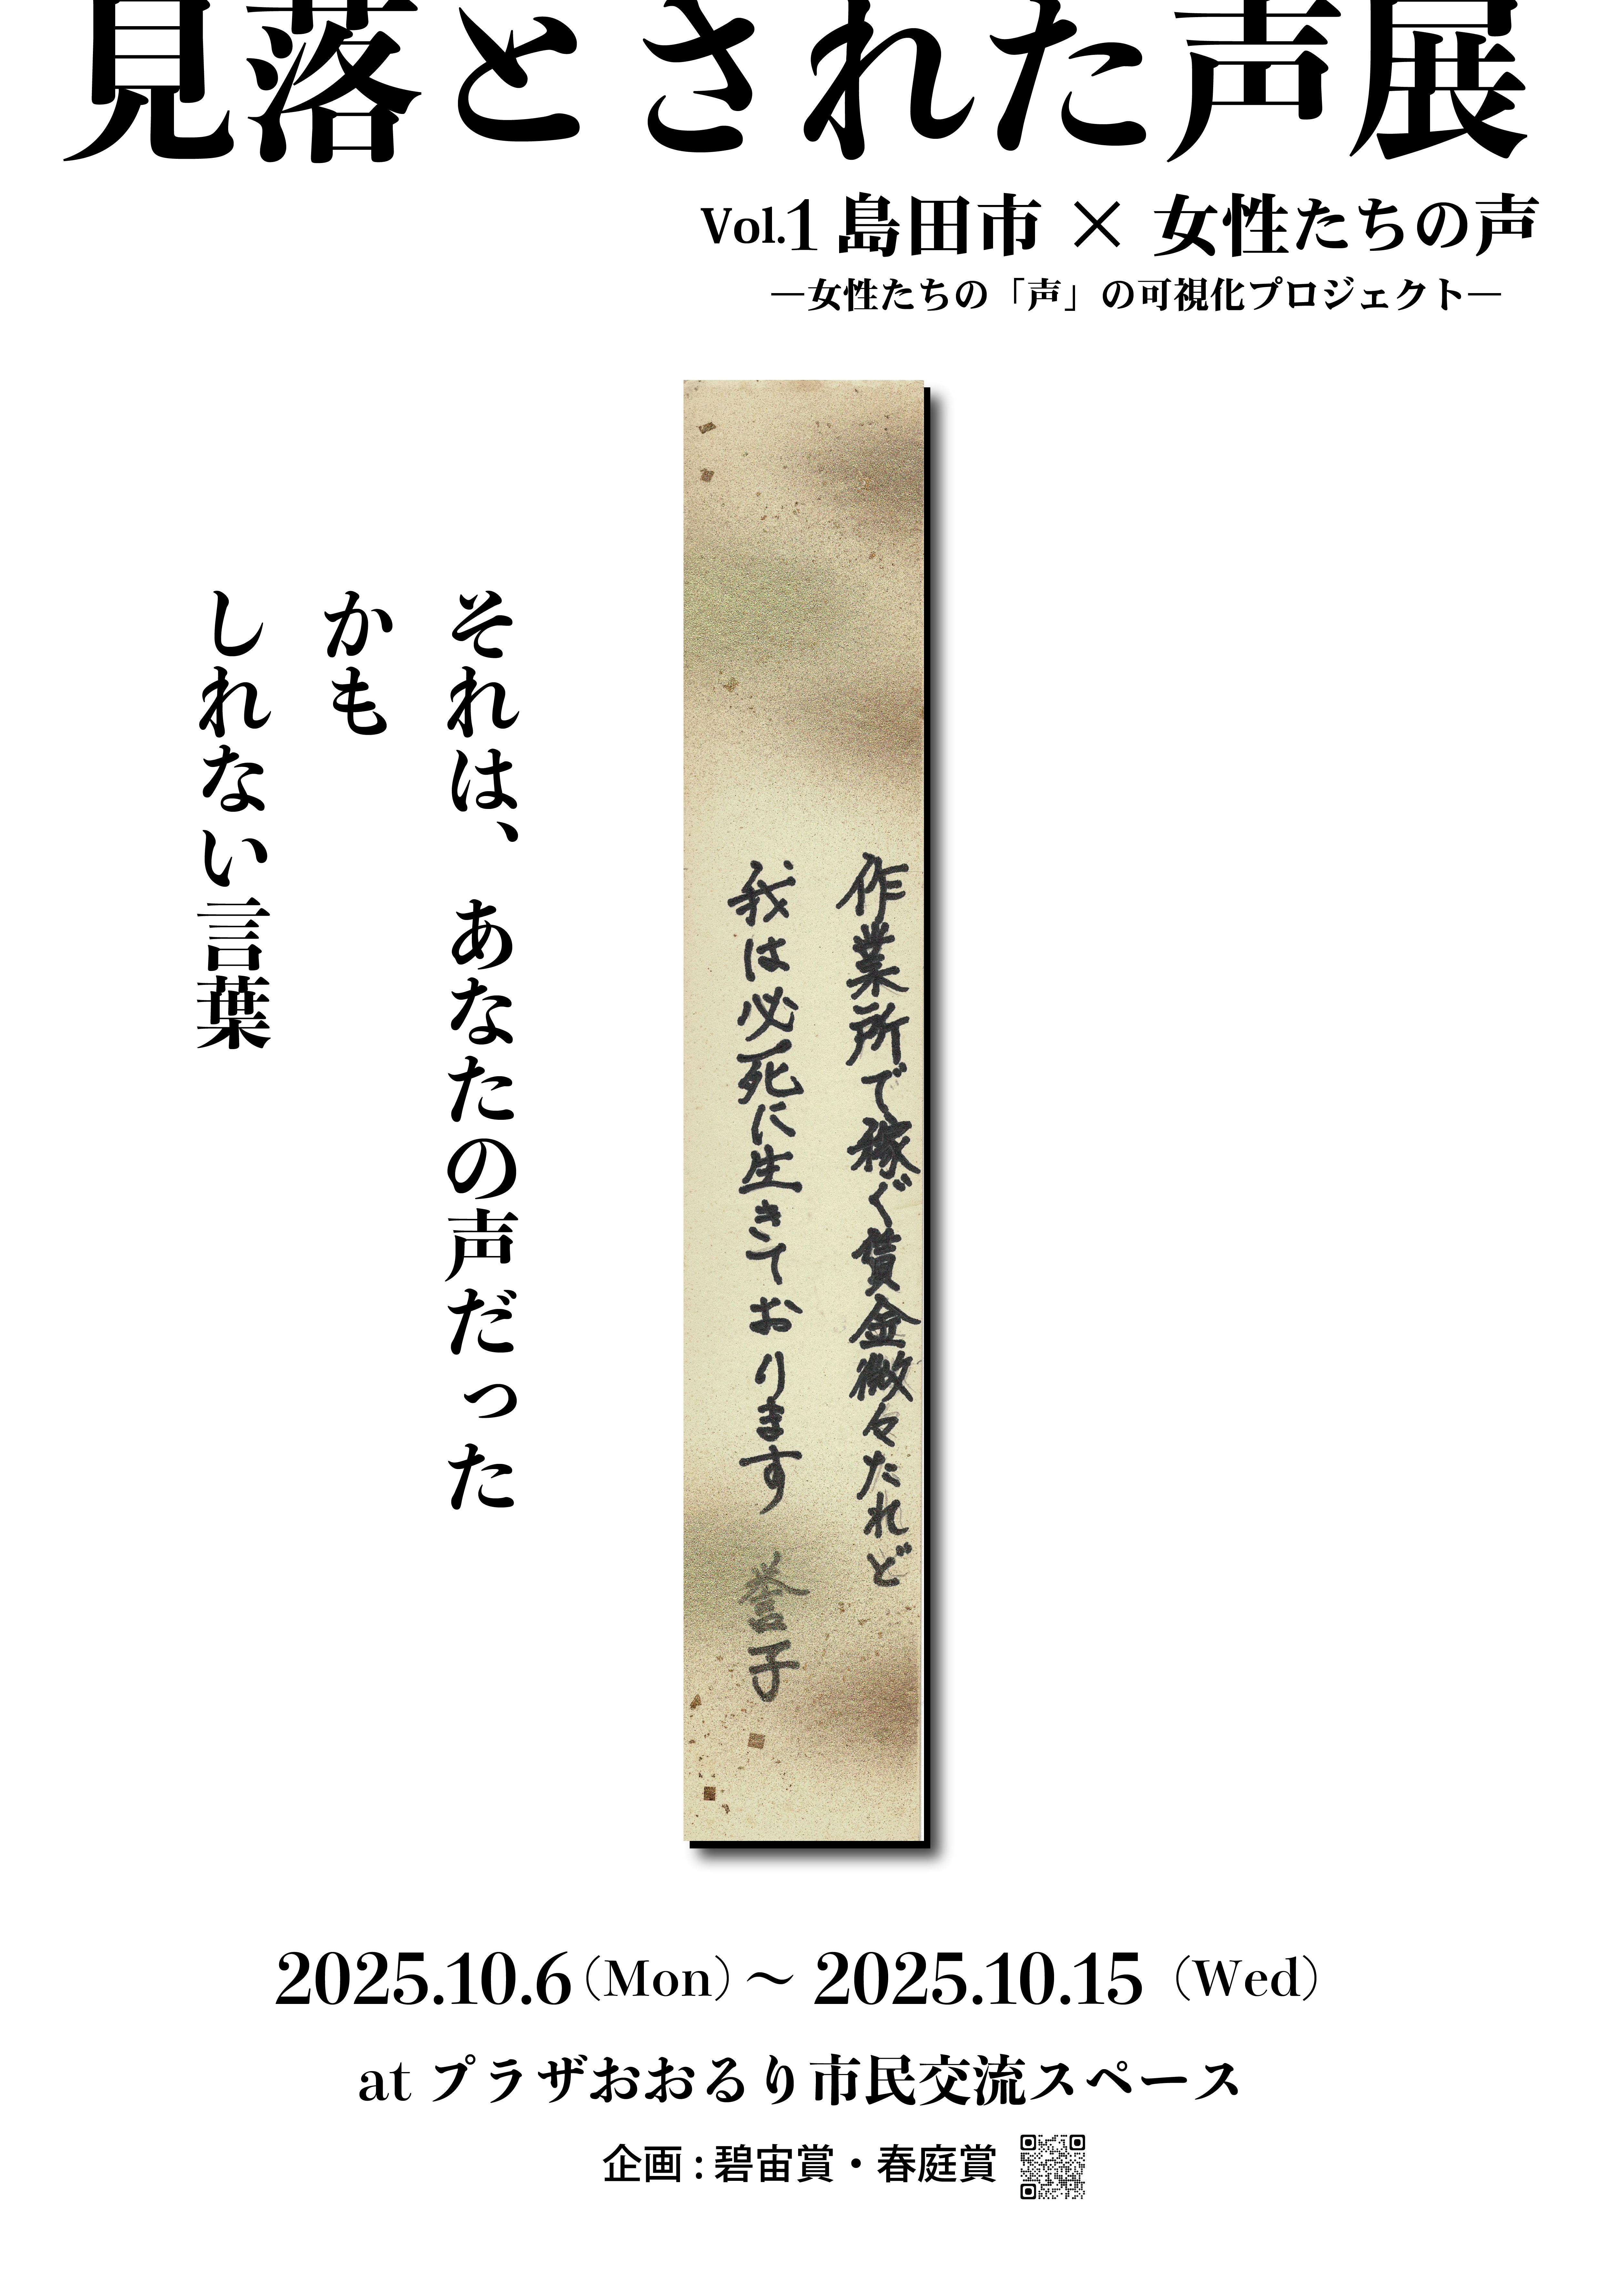 見落とされた声展
Vol.1 島田市 × 女性たちの声
―女性たちの「声」の可視化プロジェクト―
作業所で稼ぐ賃金微々たれど
我は必死に生きております 誉子
それは、あなたの声だった
かも
しれない言葉
2025.10.6（Mon）～ 2025.10.15（Wed）
at プラザおおるり市民交流スペース
企画：碧宙賞・春庭賞